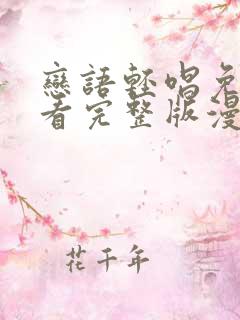 戀語輕唱免
看完整版漫
花千年